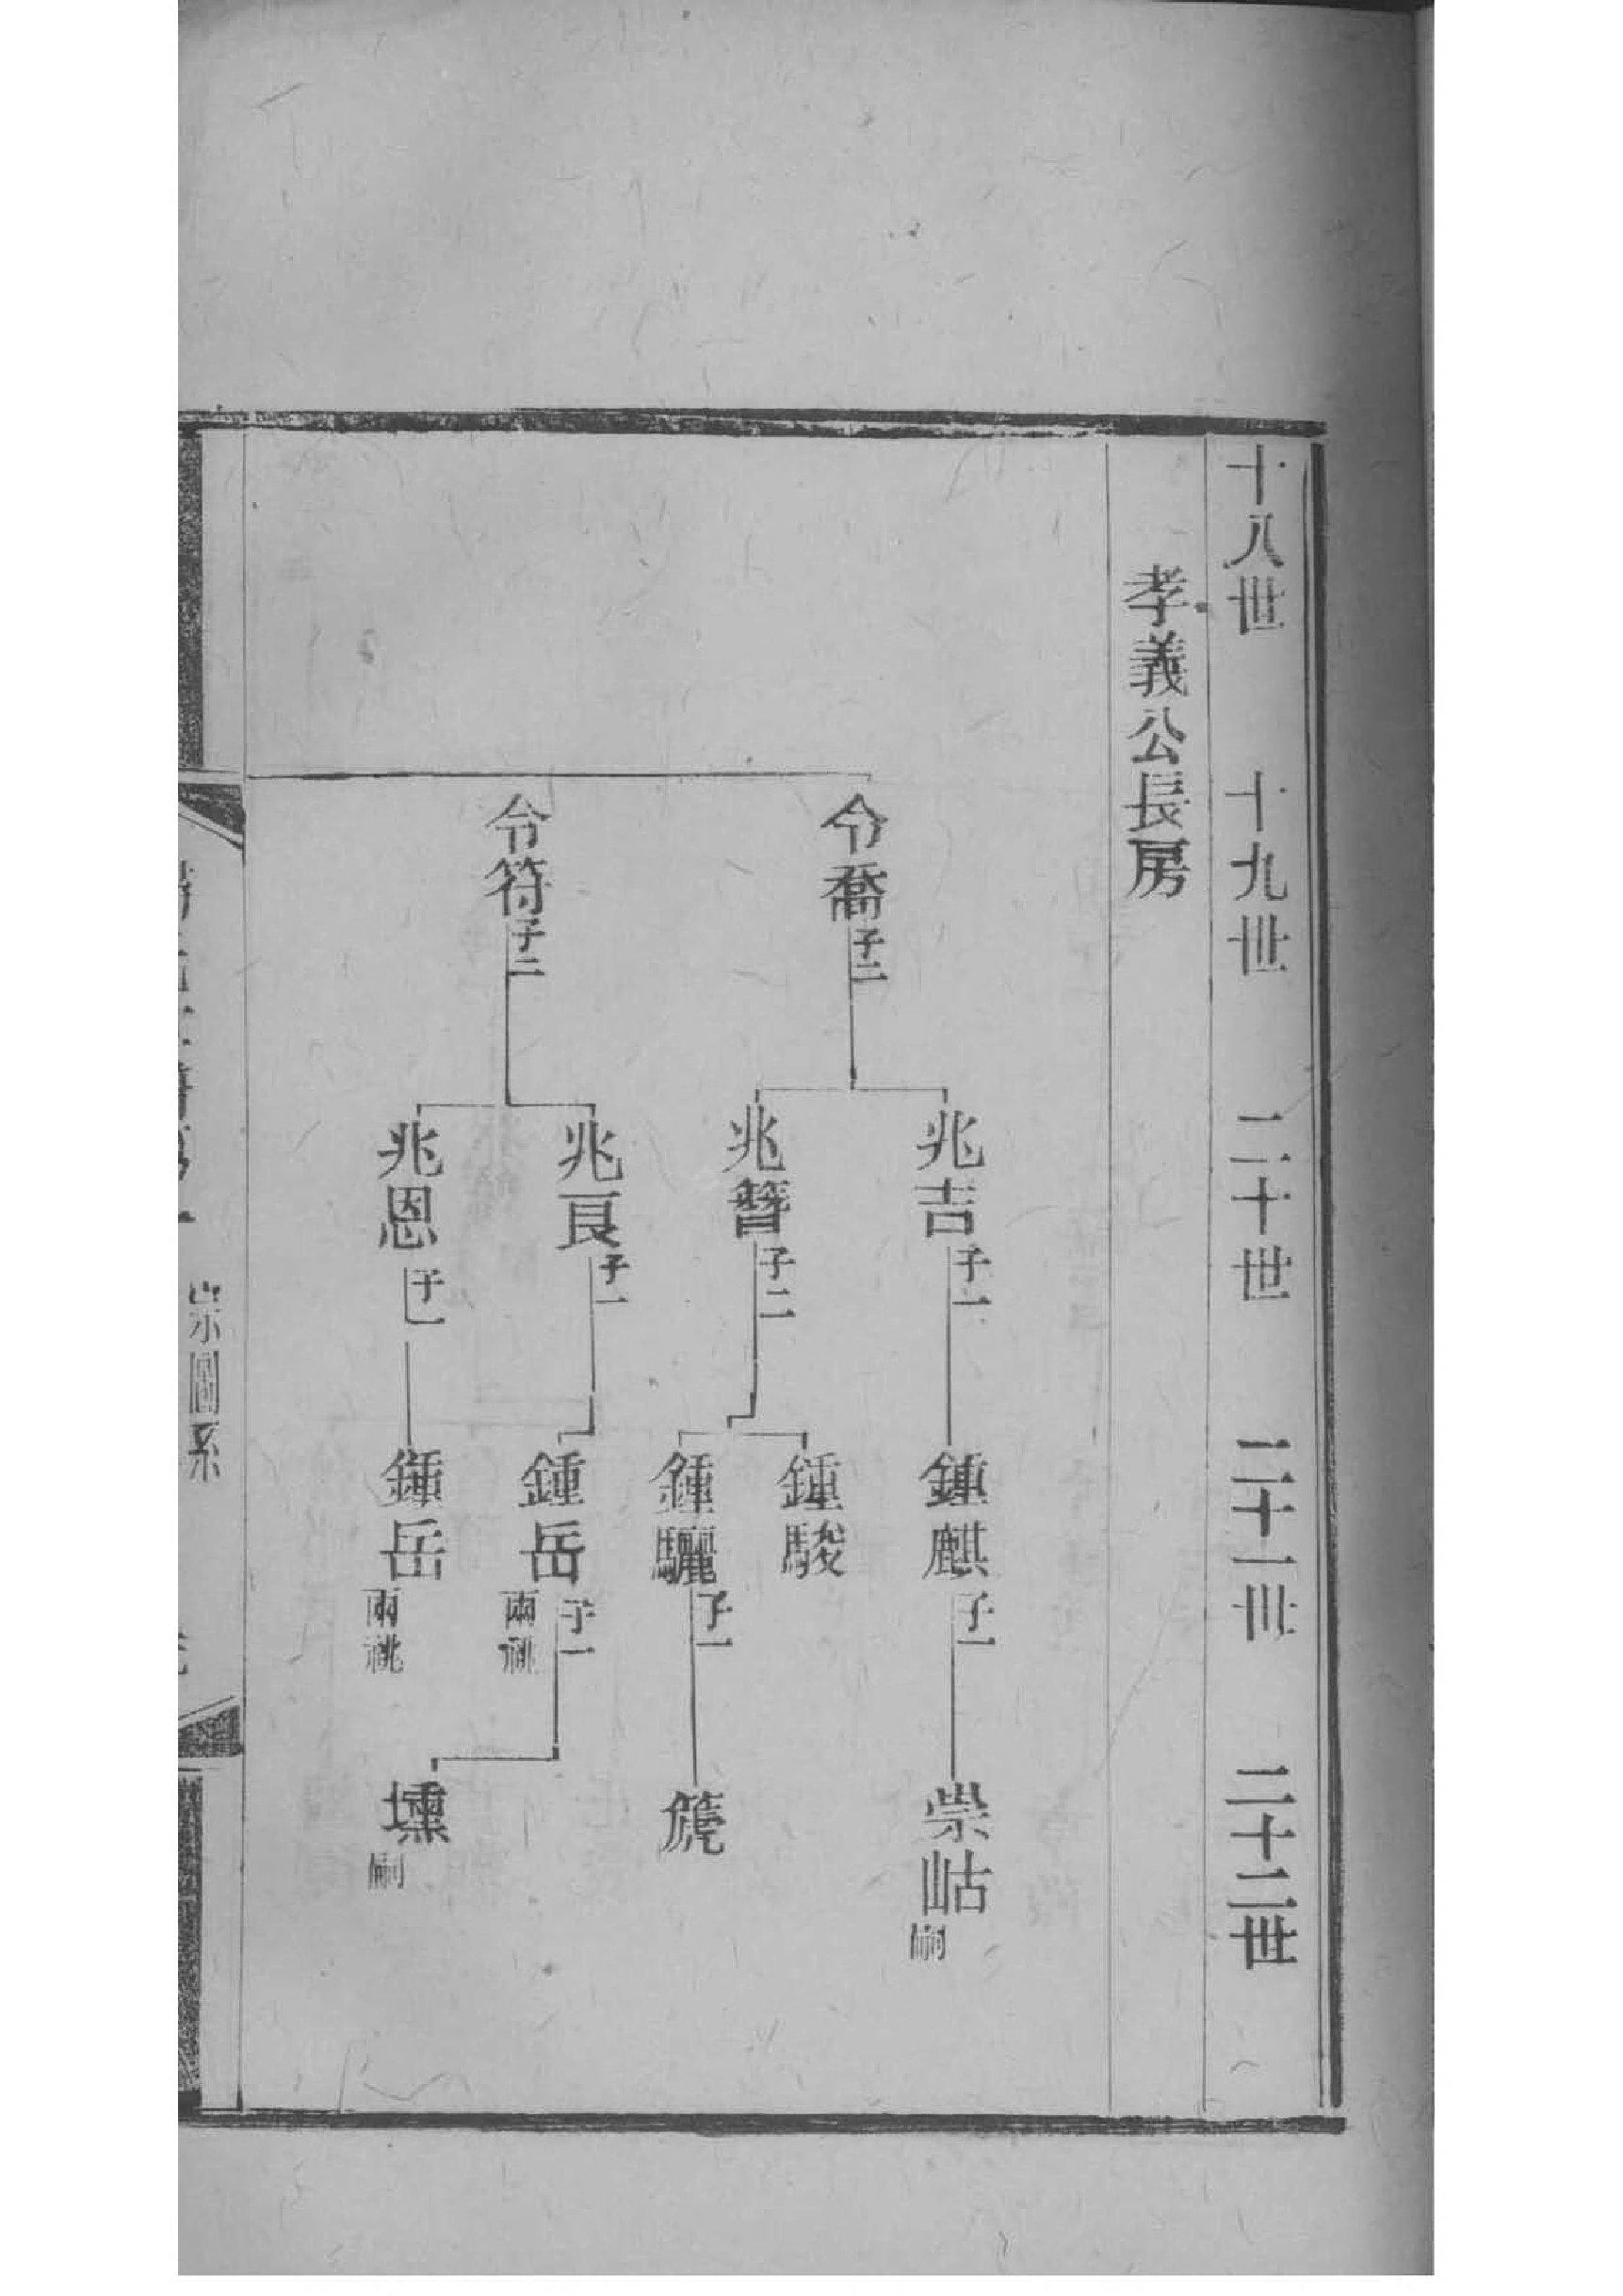 十八世
十九世
二十世
二十一世
二十二世
孝義公長房
令喬 子二
令符 子二
兆吉 子一
兆簪 子二
兆良 子一
兆恩 子一
鍾麒 子一
鍾駿
鍾驪 子一
鍾岳 子一 兩祧
鍾岳 兩祧
崇岵 嗣
篪
壎 嗣
宗圖系